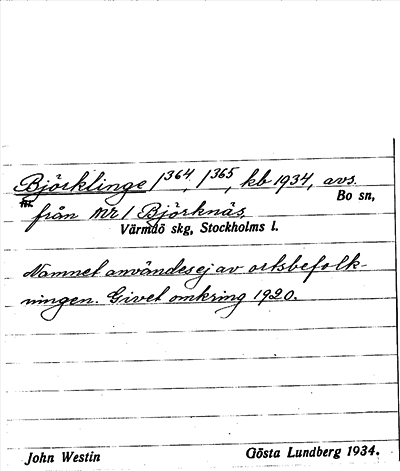 Björklinge 1364, 1365, kb 1934, avs.
Bo sn,
från Mr 1 Björknäs.
Värmdö skg, Stockholms l.
Namnet användes ej av ortsbefolk-
ningen. Givet omkring 1920.
John Westin
Gösta Lundberg 1934.